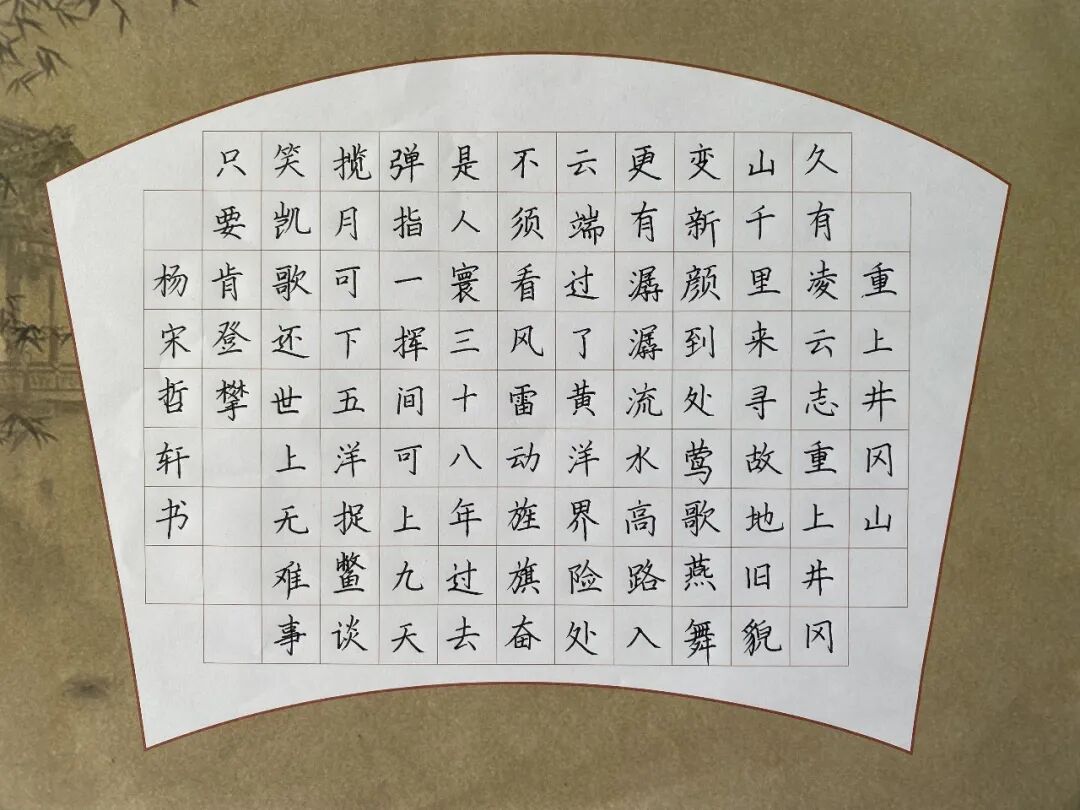 重上井冈山
久有凌云志重上井冈
山千里来寻故地旧貌
变新颜到处莺歌燕舞
更有潺潺流水高路入
云端过了黄洋界险处
不须看风雷动旌旗奋
是人寰三十八年过去
弹指一挥间可上九天
揽月可下五洋捉鳖谈
笑凯歌还世上无难事
只要肯登攀
杨宋哲轩书